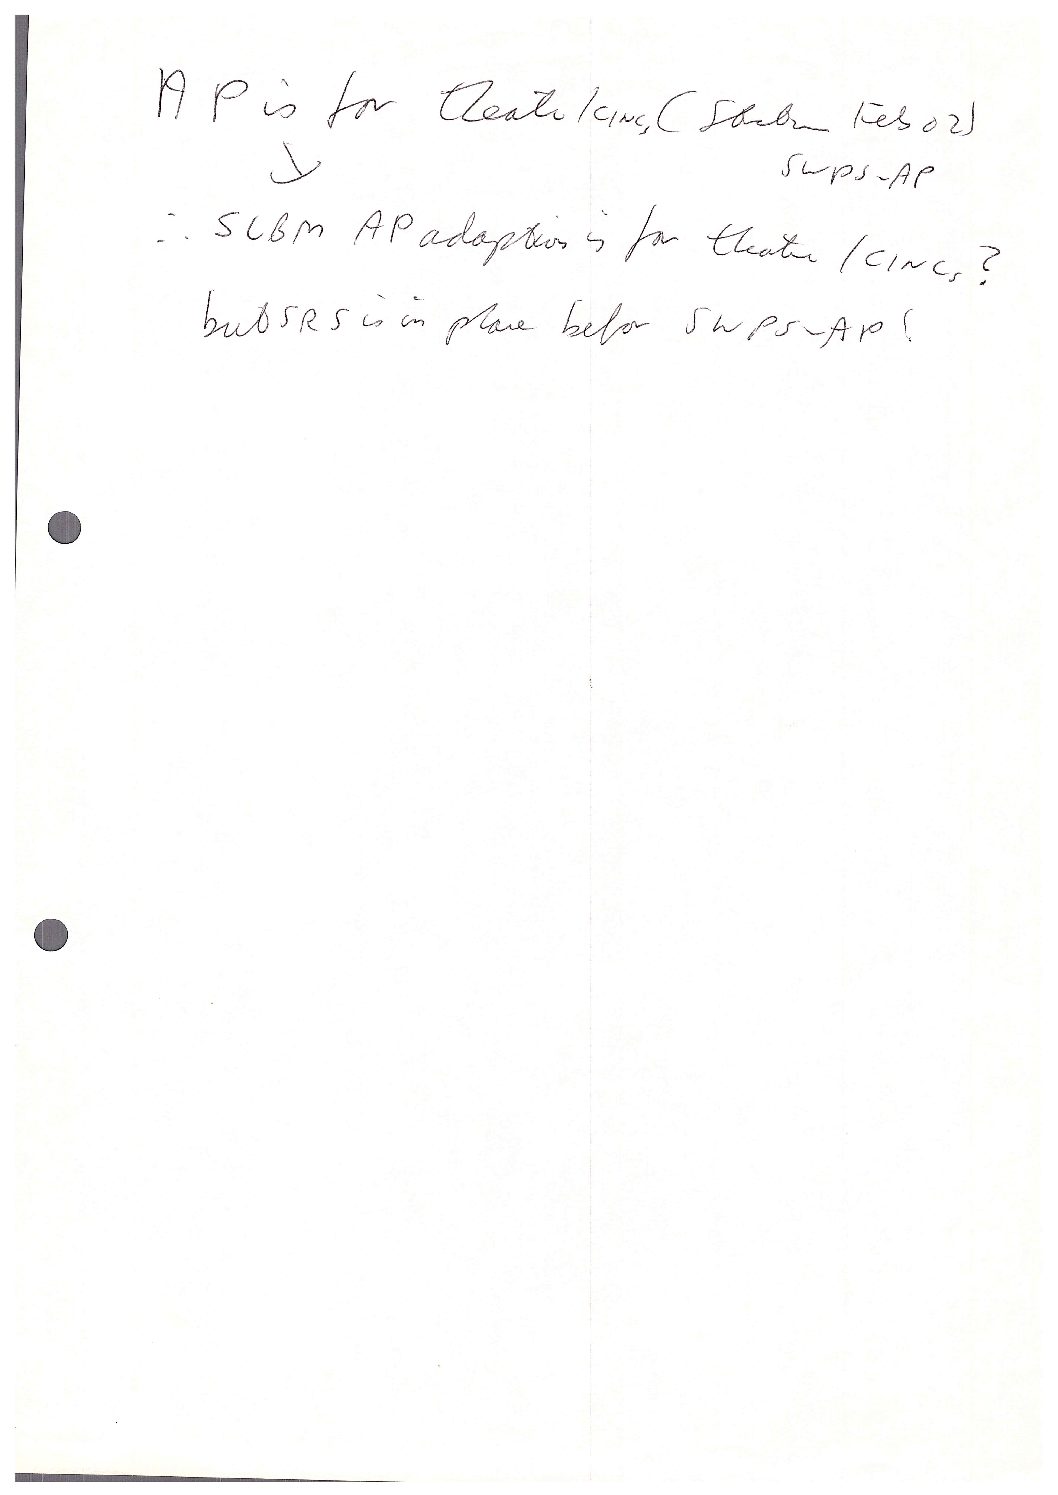 AP is for theatre/CINCs ( Feb 02)
SWPS-AP
∴ SLBM AP adaption is for theatre/CINCs?
but SRS is in place before SWPS-AP!